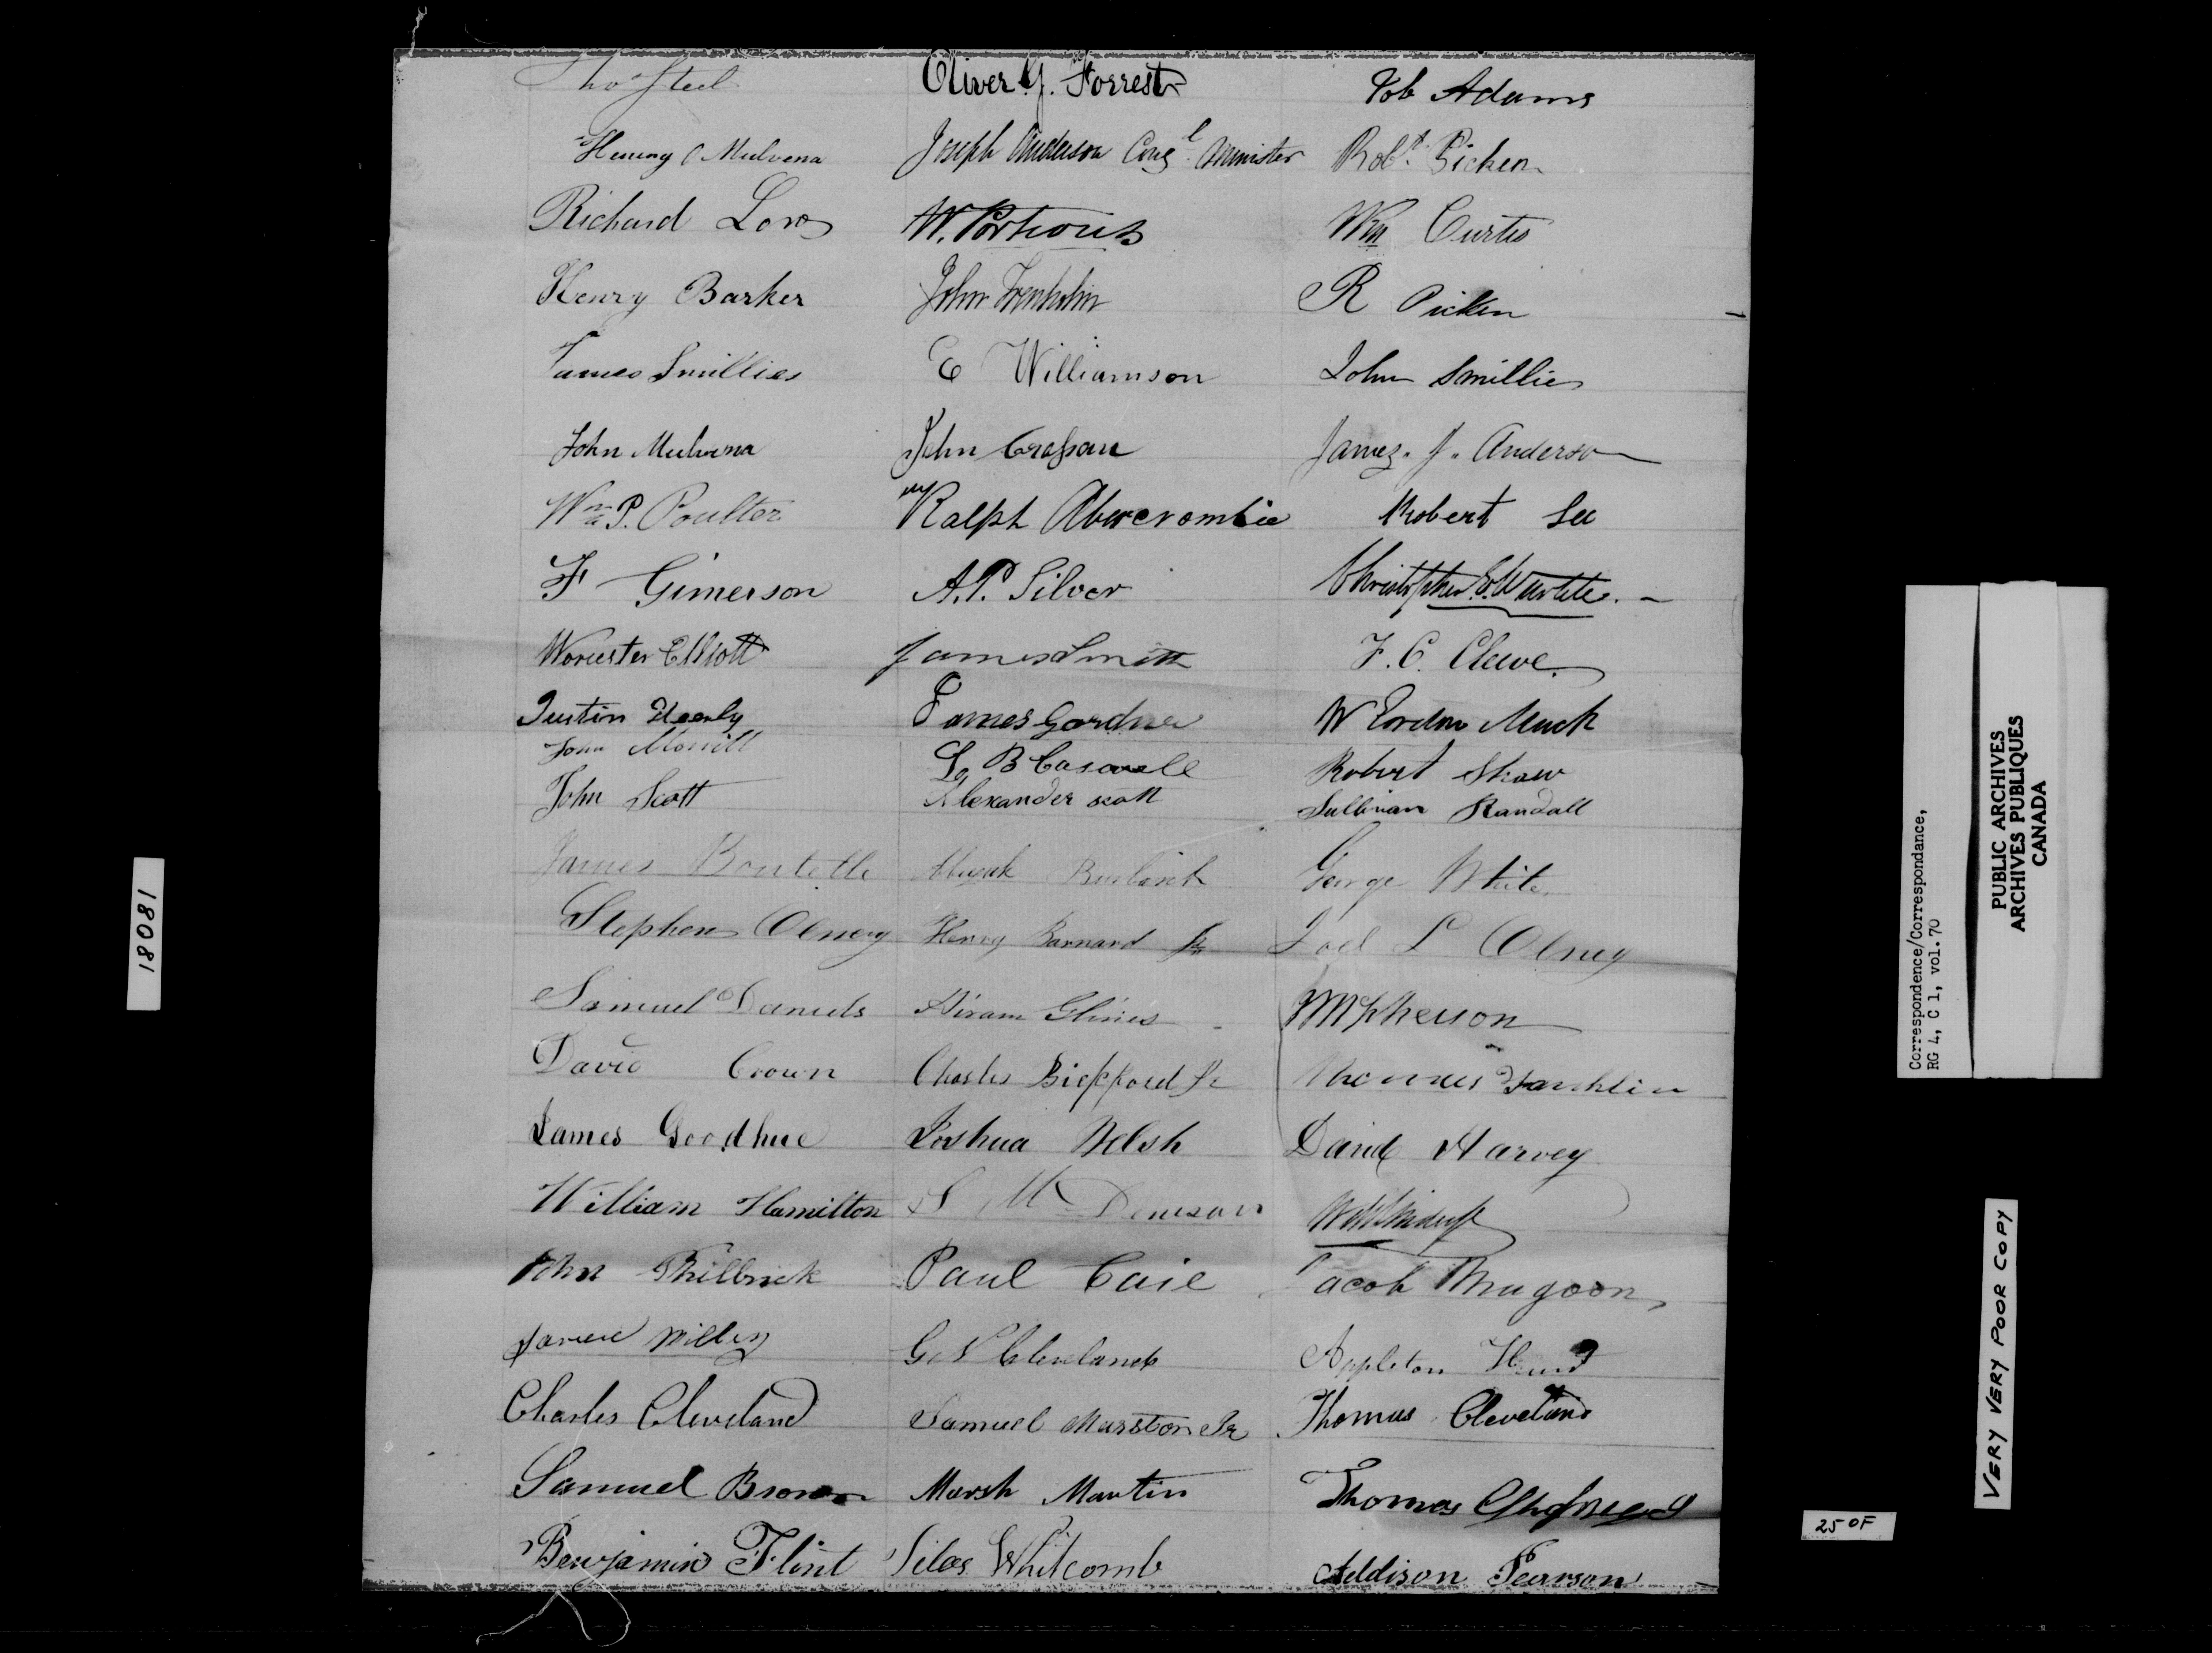 Thos Steel
Oliver G. Forrest
Job Adams
Henry Mulvena
Joseph Anderson Congl Minister
Robt Picken
Richard Love
W. Porteous
Wm Curtis
Henry Barker
John Trenholm
R Picken
James Smillie
E Williamson
John Smillie
John Mulvena
John
James. J. Anderson
Wm P. Poulter
Ralph Abercrombie
Robert Lee
F Gimerson
A. P. Silver
Christopher
Worcester Elliott
James Smith
F. C. Cleve
James Gardner
W Gordon Mack
John Morrill
B Caswell
Robert Shaw
John Scott
Alexander Scott
Sullivan Randall
James Boutelle
Burbank
George White
Stephen Olney
Henry Barnard Jr
Joel L Olney
Samuel Daniels
Hiram Glines
McPherson
David Crown
Charles Bickford Jr
Thomas
James Goodhue
Joshua Welsh
David Harvey
William Hamilton
S M Denison
John Philbrick
Paul Caie
Jacob Magoon
Willey
G N Cleveland
Appleton
Charles Cleveland
Samuel Marston Jr
Thomas Cleveland
Samuel Brown
Marsh Martin
Thomas
Benjamin Flint
Silas Whitcomb
Addison Pearson
18081
Correspondence/Correspondance,
RG 4, C 1, vol. 70
PUBLIC ARCHIVES
ARCHIVES PUBLIQUES
CANADA
VERY VERY POOR COPY
25 OF